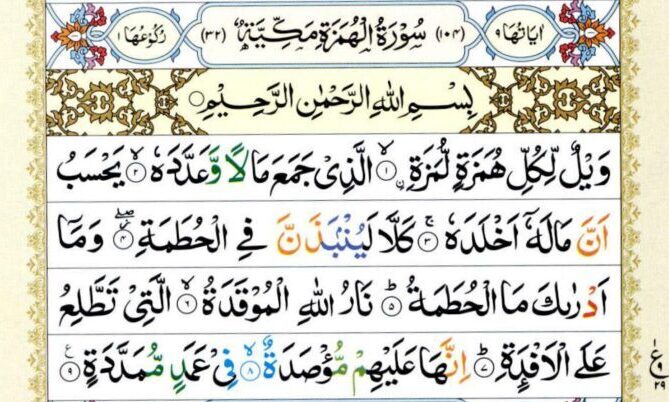 اٰیَاتُهَا ٩ (١٠٤) سُوْرَةُ الْهُمَزَةِ مَكِّیَّةٌ (٣٢) رُكُوْعُهَا ١
بِسْمِ اللهِ الرَّحْمٰنِ الرَّحِیْمِ
وَیْلٌ لِّكُلِّ هُمَزَةٍ لُّمَزَةِ ۙ‏﴿١﴾ الَّذِیْ جَمَعَ مَالًا وَّعَدَّدَهٗ ۙ‏﴿٢﴾ یَحْسَبُ
اَنَّ مَالَهٗۤ اَخْلَدَهٗ ۚ‏﴿٣﴾ كَلَّا لَیُنْۢبَذَنَّ فِی الْحُطَمَةِ ۖ‏﴿٤﴾ وَمَاۤ
اَدْرٰىكَ مَا الْحُطَمَةُ ؕ‏﴿٥﴾ نَارُ اللهِ الْمُوْقَدَةُ ۙ‏﴿٦﴾ الَّتِیْ تَطَّلِعُ
عَلَی الْاَفْـِٕدَةِ ؕ‏﴿٧﴾ اِنَّهَا عَلَیْهِمْ مُّؤْصَدَةٌ ۙ‏﴿٨﴾ فِیْ عَمَدٍ مُّمَدَّدَةٍ ﴿٩﴾ ع
ع
٩
٢٩